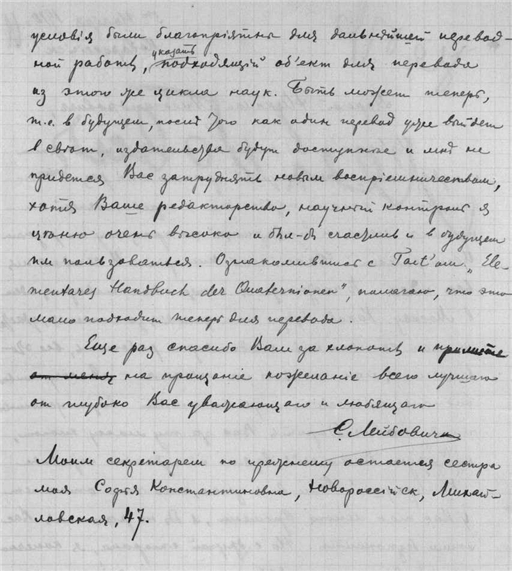 условія были благопріятны для дальнѣйшей перевод-
ной работы, указать подходящій об'ект для перевода
из этого же цикла наук. Быть может теперь,
т.е. в будущем, послѣ того как один перевод уже выйдет
в свѣт, издательства будут доступнѣе и мнѣ не
придется Вас затруднять новым воспріемничеством,
хотя Ваше редакторство, научный контроль я
цѣню очень высоко и был-бы счастлив и в будущем
им пользоваться. Ознакомившись с Tait'ом „Ele-
mentares Handbuch der Quaternionen", полагаю, что это
мало подходит теперь для перевода.
Еще раз спасибо Вам за хлопоты и примите
от меня на прощаніе пожеланіе всего лучшаго
от глубоко Вас уважающаго и любящаго
С. Лейбовича
Моим секретарем по прежнему остается сестра
моя Софія Константиновна, Новороссійск, Михай-
ловская, 47.